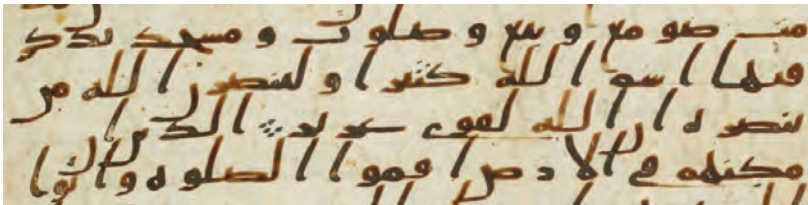 مت صومع و بيع و صلوت و مسجد يذكر
فيها اسم الله كثيرا و لينصرن الله من
ينصره ان الله لقوى عزيز الذين ان
مكنهم في الارض اقموا الصلوه واتوا